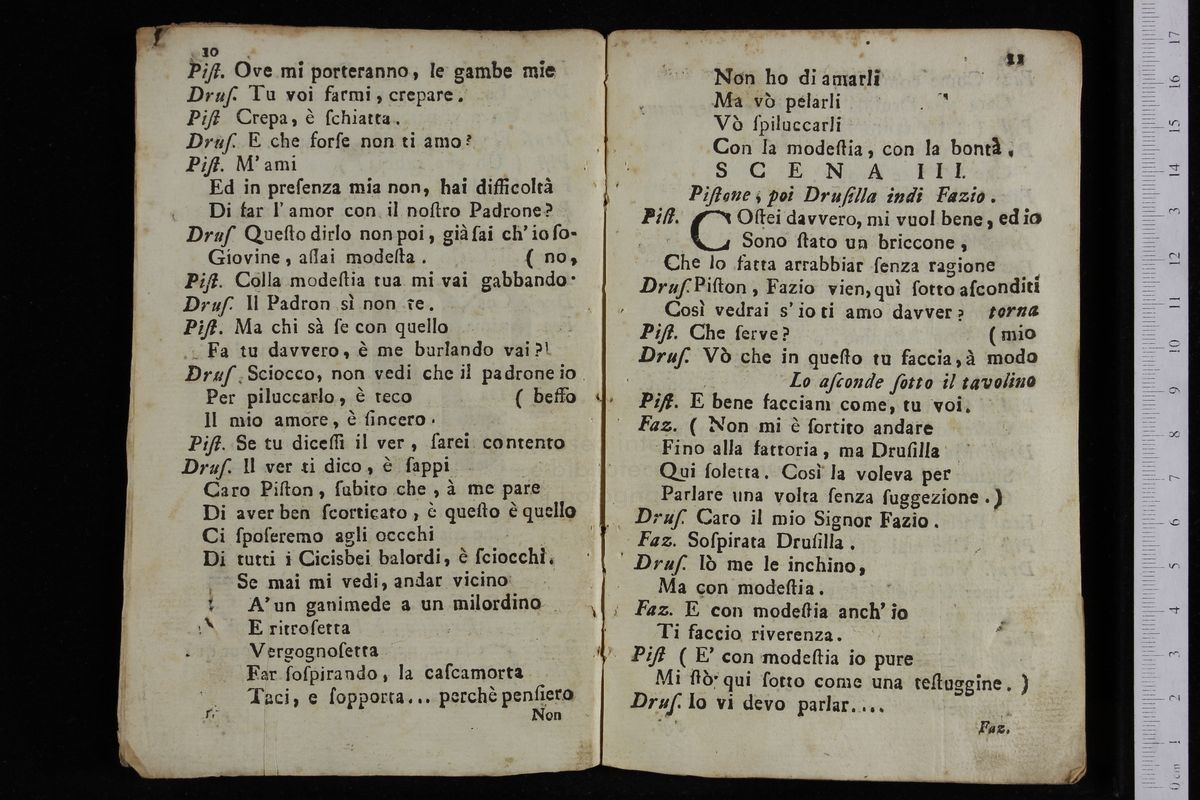 10
Piſt. Ove mi porteranno, le gambe mie
Druſ. Tu voi farmi, crepare.
Piſt Crepa, è ſchiatta.
Druſ. E che forſe non ti amo?
Piſt. M'ami
Ed in preſenza mia non, hai difficoltà
Di far l'amor con il noſtro Padrone?
Druſ Queſto dirlo non poi, già ſai ch'io ſo-
Giovine, aſſai modeſta. ( no,
Piſt. Colla modeſtia tua mi vai gabbando.
Druſ. Il Padron sì non te.
Piſt. Ma chi sà ſe con quello
Fa tu davvero, è me burlando vai?
Druſ. Sciocco, non vedi che il padrone io
Per piluccarlo, è teco ( beffo
Il mio amore, è ſincero.
Piſt. Se tu diceſſi il ver, ſarei contento
Druſ. Il ver ti dico, è ſappi
Caro Piſton, ſubito che, à me pare
Di aver ben ſcorticato, è queſto è quello
Ci ſpoſeremo agli occchi
Di tutti i Cicisbei balordi, è ſciocchi.
Se mai mi vedi, andar vicino
A'un ganimede a un milordino
E ritroſetta
Vergognoſetta
Far ſoſpirando, la caſcamorta
Taci, e ſopporta... perchè penſiero
Non
11
Non ho di amarli
Ma vò pelarli
Vò ſpiluccarli
Con la modeſtia, con la bontà.
SCENA III.
Piſtone, poi Druſilla indi Fazio.
Piſt. COſtei davvero, mi vuol bene, ed io
Sono ſtato un briccone,
Che lo fatta arrabbiar ſenza ragione
Druſ. Piſton, Fazio vien, quì ſotto aſconditi
Così vedrai s'io ti amo davver? torna
Piſt. Che ſerve? (mio
Druſ. Vò che in queſto tu faccia, à modo
Lo aſconde ſotto il tavolino
Piſt. E bene facciam come, tu voi.
Faz. ( Non mi è ſortito andare
Fino alla fattoria, ma Druſilla
Qui ſoletta. Così la voleva per
Parlare una volta ſenza ſuggezione.)
Druſ. Caro il mio Signor Fazio.
Faz. Soſpirata Druſilla.
Druſ. Iò me le inchino,
Ma con modeſtia.
Faz. E con modeſtia anch'io
Ti faccio riverenza.
Piſt ( E' con modeſtia io pure
Mi ſtò qui ſotto come una teſtuggine. )
Druſ. Io vi devo parlar....
Faz.
0 cm 1 2 3 4 5 6 7 8 9 10 11 12 13 14 15 16 17